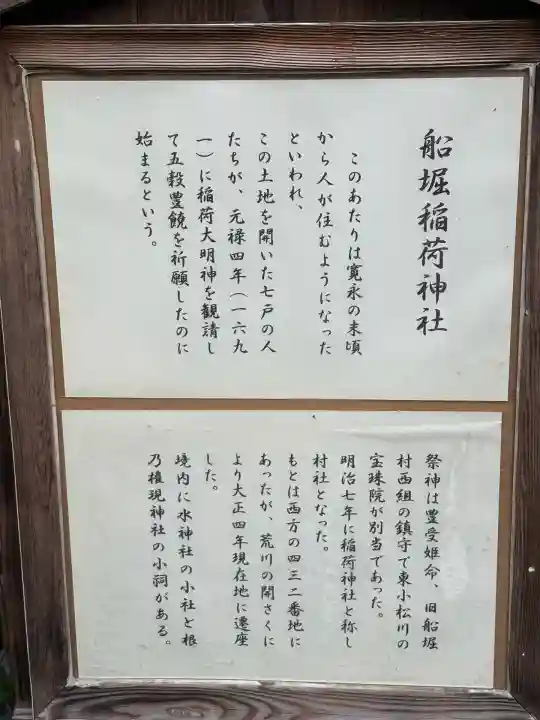 船堀稲荷神社
このあたりは寛永の末頃
から人が住むようになった
といわれ、
この土地を開いた七戸の人
たちが、元禄四年(一六九
一)に稲荷大明神を観請し
て五穀豊饒を祈願したのに
始まるという。
祭神は豊受姫命、旧船堀
村西組の鎮守で東小松川の
宝珠院が別当であった。
明治七年に稲荷神社と称し
村社となった。
もとは西方の四三二番地に
あったが、荒川の開さくに
より大正四年現在地に遷座
した。
境内に水神社の小社と根
乃権現神社の小祠がある。